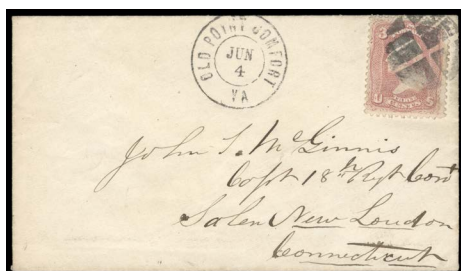 OLD POINT COMFORT
JUN
4
VA
3
U THREE CENTS S
John S. McGinnis
Capt 18th Regt Con
Salem New London
Connecticut